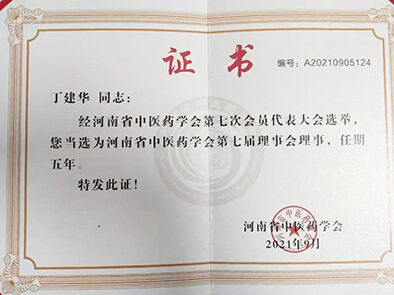 证书
编号：A20210905124
丁建华 同志：
经河南省中医药学会第七次会员代表大会选举，
您当选为河南省中医药学会第七届理事会理事，任期
五年。
特发此证！
河南省中医药学会
2021年9月